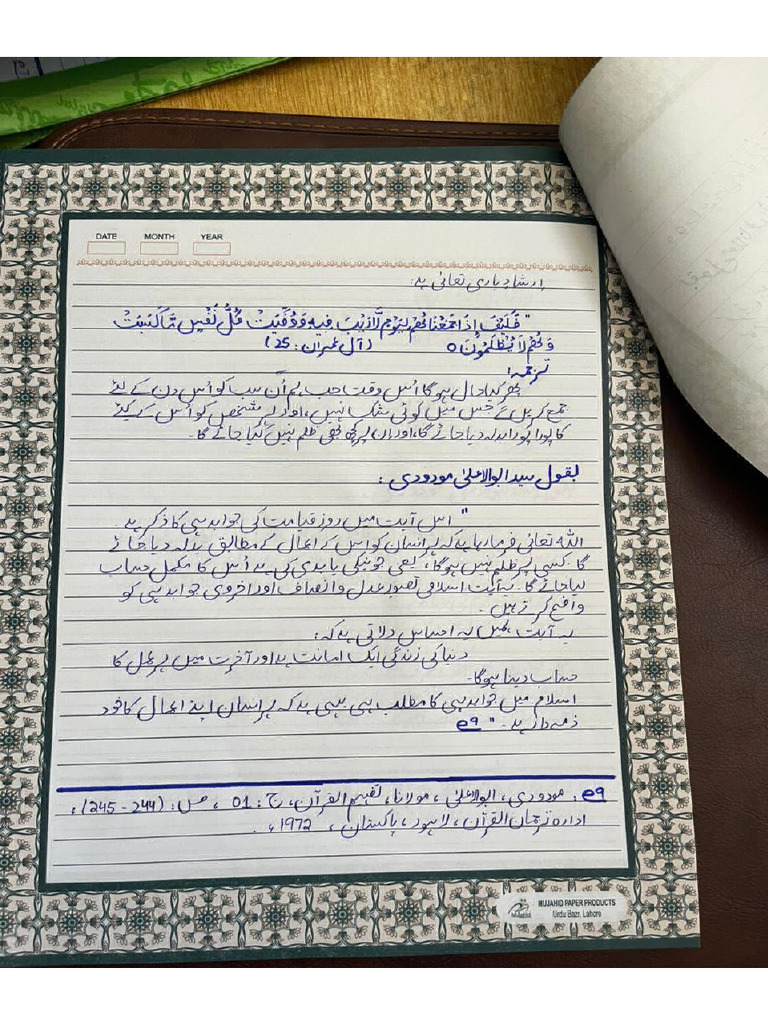 DATE MONTH YEAR
ارشاد باری تعالیٰ ہے:
"فَكَيْفَ إِذَا جَمَعْنَاهُمْ لِيَوْمٍ لَّا رَيْبَ فِيهِ وَوُفِّيَتْ كُلُّ نَفْسٍ مَّا كَسَبَتْ
وَهُمْ لَا يُظْلَمُونَ ٥ (آل عمران: 25)
ترجمہ:
پھر کیا حال ہوگا اُس وقت جب ہم اُن سب کو اُس دن کے لئے
جمع کریں گے جس میں کوئی شک نہیں، اور ہر شخص کو اُس کے کیئے
کا پورا پورا بدلہ دیا جائے گا، اور ان پر کچھ بھی ظلم نہیں کیا جائے گا۔
بقول سید ابوالاعلیٰ مودودی:
"اس آیت میں روز قیامت کی جوابدہی کا ذکر ہے۔
اللہ تعالیٰ فرما رہا ہے کہ ہر انسان کو اس کے اعمال کے مطابق بدلہ دیا جائے
گا۔ کسی پر ظلم نہیں ہوگا، یعنی جو نیکی یا بدی کی ہے اُس کا مکمل حساب
لیا جائے گا۔ یہ آیت اسلامی تصور عدل و انصاف اور اخروی جوابدہی کو
واضح کر تی ہیں۔
یہ آیت ہمیں یہ احساس دلاتی ہے کہ:
دنیا کی زندگی ایک امانت ہے اور آخرت میں ہر عمل کا
حساب دینا ہوگا۔
اسلام میں جوابدہی کا مطلب ہی یہی ہے کہ ہر انسان اپنے اعمال کا خود
ذمہ دار ہے۔" e9
e9: مودودی، ابوالاعلیٰ، مولانا، تفہیم القرآن، ج: 01، ص: (244 - 245)،
ادارہ ترجمان القرآن، لاہور، پاکستان، 1972ء۔
MUJAHID PAPER PRODUCTS
Urdu Bazr, Lahore